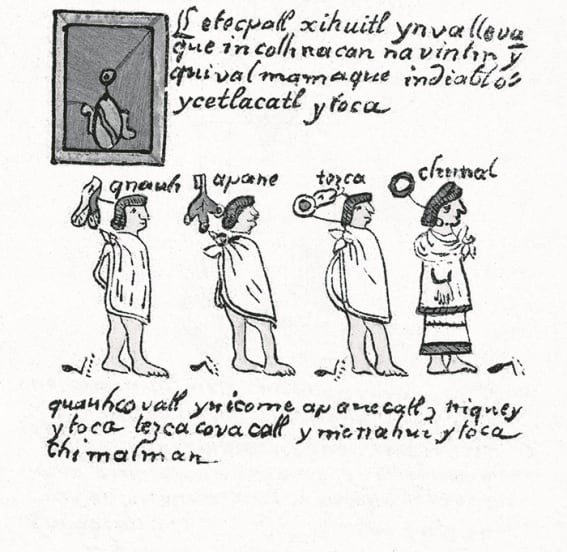 Ce tecpatl xihuitl yn valleva
que in colhuacan navintin y
quival mamaque in diablos
ycetlacatl ytoca
quauh apane tezca chimal
quauhcovatl ynicome apanecatl, niquey
ytoca tezcacovacatl ynicnahui ytoca
chimalman